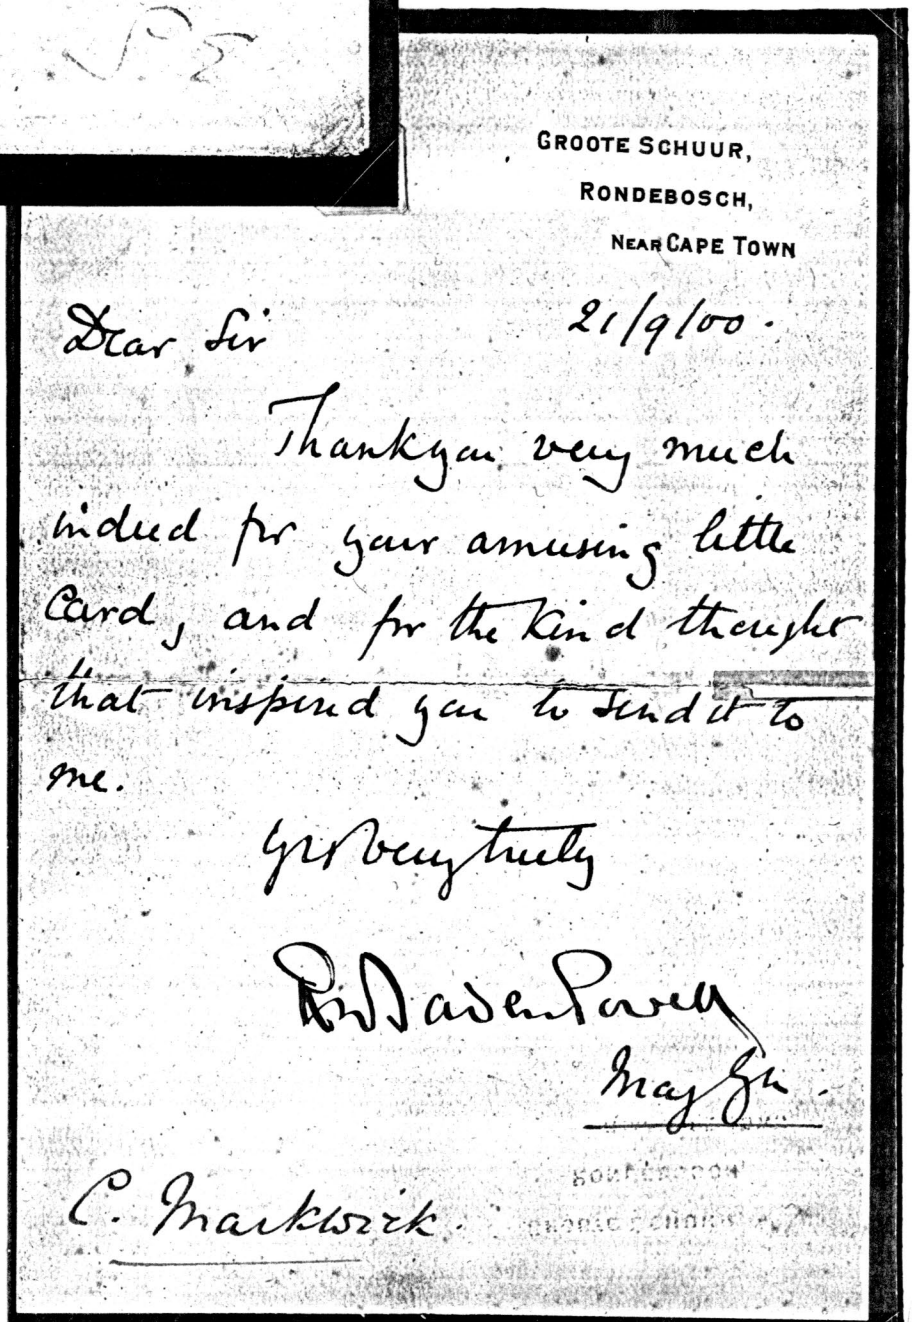 GROOTE SCHUUR,
RONDEBOSCH,
NEAR CAPE TOWN
21/9/00.
Dear Sir
Thank you very much
indeed for your amusing little
Card, and for the kind thought
that inspired you to send it to
me.
Yrs very truly
R S S Baden Powell
Maj Gn.
C. Markwick.